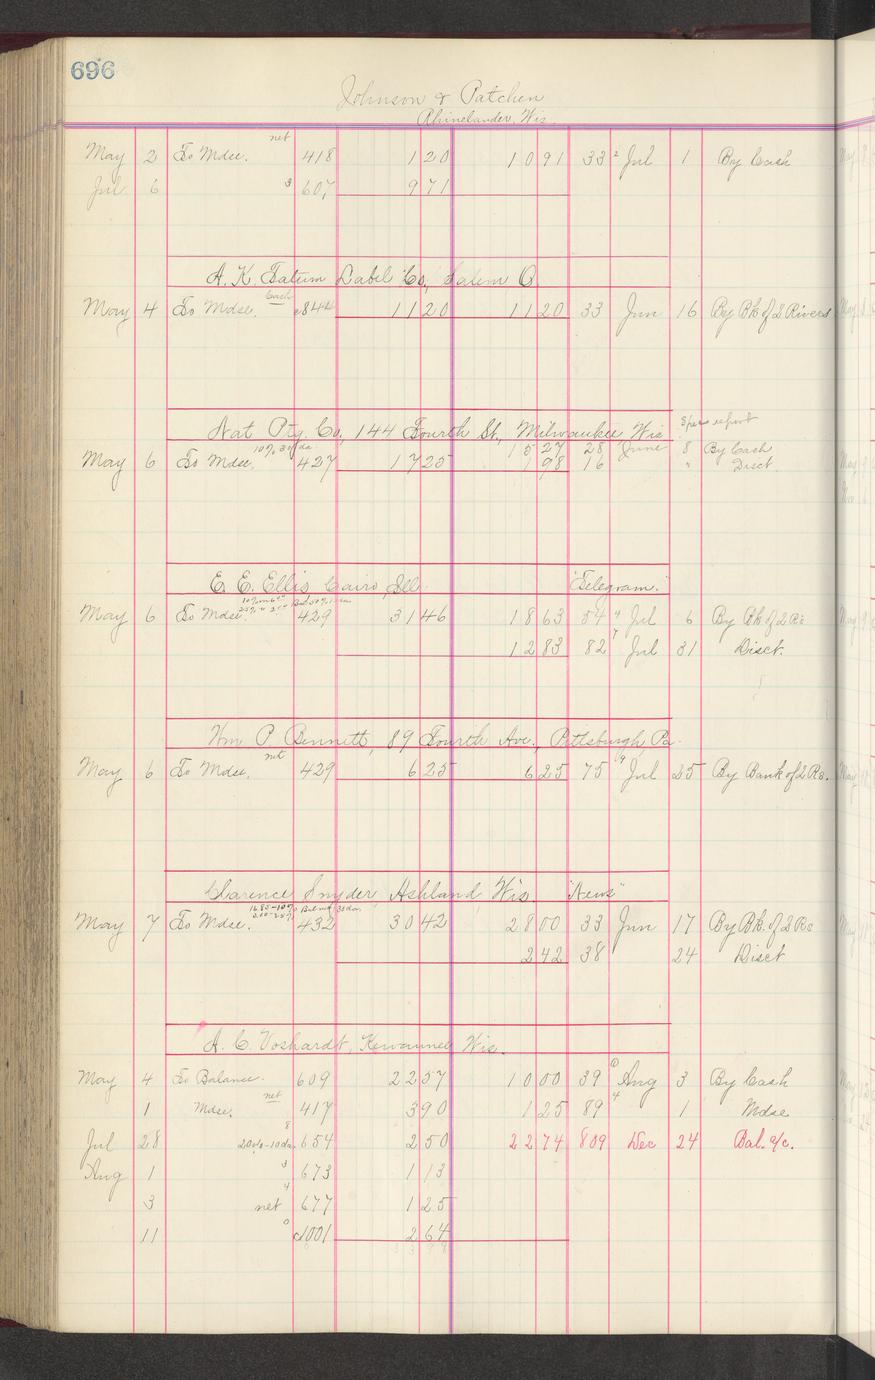 696
Johnson & Patchen
Rhinelander, Wis.
May 2 To Mdse. net 418 1 20 10 91 33 2 Jul 1 By Cash
Jul 6 3 607 9 71
A. K. Tatum Label Co., Salem O
May 4 To Mdse. Cash c844 11 20 11 20 33 Jun 16 By Bk of 2 Rivers
Nat Ptg. Co., 144 Fourth St., Milwaukee Wis
15 27 28 June 8 By Cash
May 6 To Mdse. 10% 30 da 427 17 25 1 98 16 " Disct.
E. E. Ellis Cairo, Ill. "Telegram."
May 6 To Mdse. 429 31 46 18 63 54 4 Jul 6 By Bk of 2 Rs
12 83 82 7 Jul 31 Disct.
Wm P. Bennett, 89 Fourth Ave., Pittsburgh Pa.
May 6 To Mdse. net 429 6 25 6 25 75 19 Jul 25 By Bank of 2 Rs.
Clarence Snyder Ashland Wis. "News"
16.85-10% Bal net 30 da.
May 7 To Mdse. 432 30 42 28 00 33 Jun 17 By Bk. of 2 Rs
2 42 38 24 Disct
A. C. Voshardt, Kewaunee Wis.
May 4 To Balance. 609 22 57 10 00 39 6 Aug 3 By Cash
1 Mdse. net 417 3 90 1 25 89 4 1 Mdse
Jul 28 20%-10 da. 8 654 2 50 22 74 809 Dec 24 Bal. a/c.
Aug 1 3 673 1 13
3 net 4 677 1 25
11 0 c1001 2 64
33 98